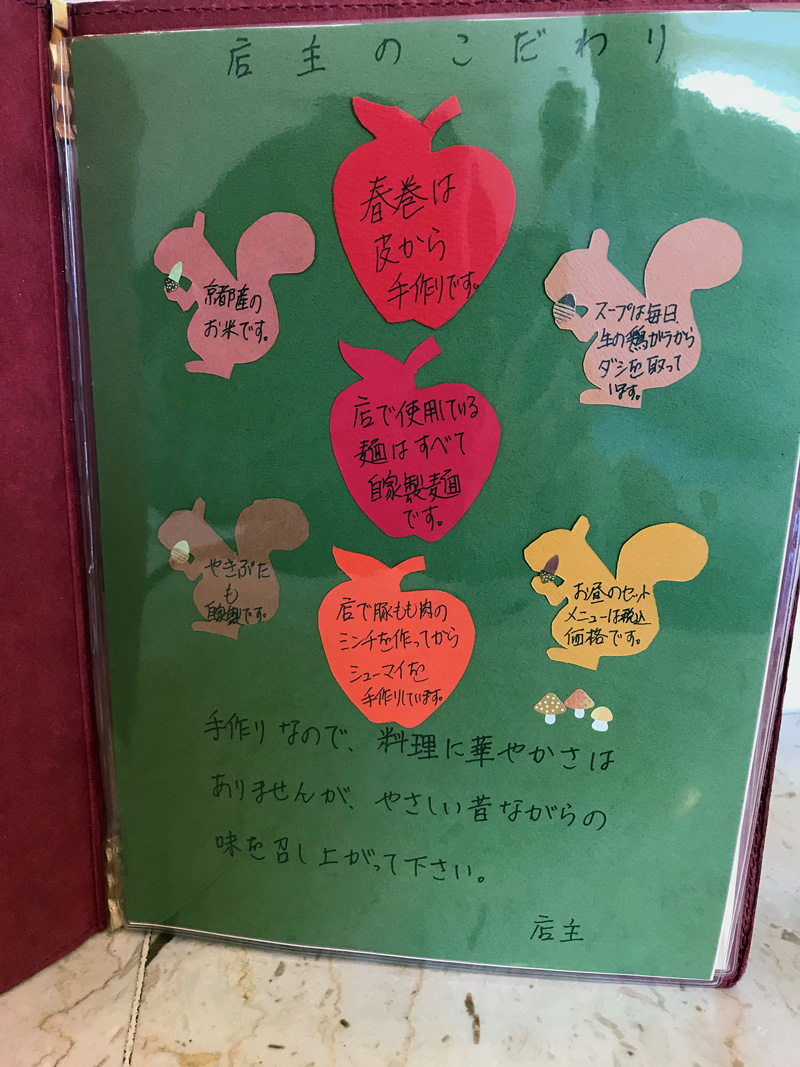 店主のこだわり
春巻は
皮から
手作りです。
京都産の
お米です。
スープは毎日
生の鶏ガラから
ダシを取って
います。
店で使用している
麺はすべて
自家製麺
です。
やきぶた
も
自家製です。
店で豚もも肉の
ミンチを作ってから
シューマイを
手作りしています。
お昼のセット
メニューは税込
価格です。
手作りなので、料理に華やかさは
ありませんが、やさしい昔ながらの
味を召し上がって下さい。
店主